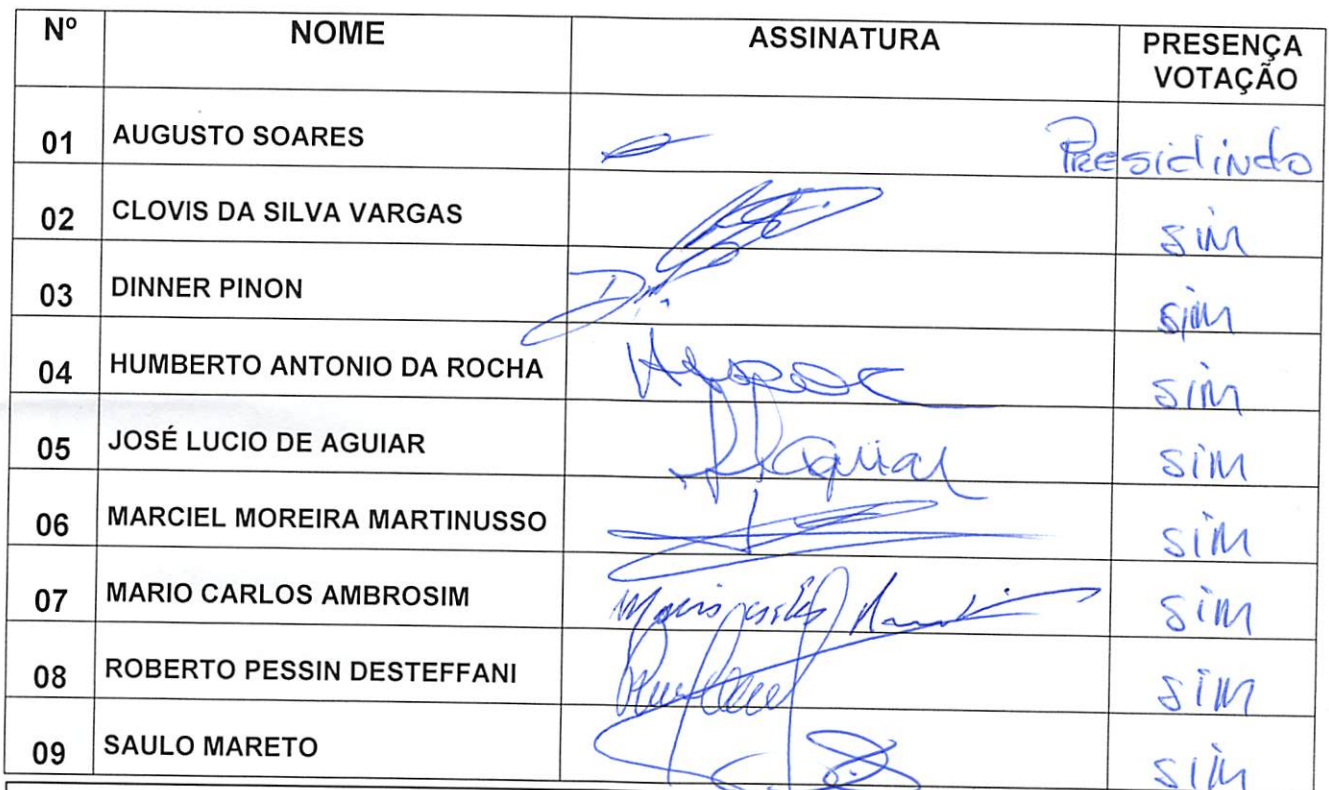 Nº NOME ASSINATURA PRESENÇA VOTAÇÃO
01 AUGUSTO SOARES Presidindo
02 CLOVIS DA SILVA VARGAS sim
03 DINNER PINON sim
04 HUMBERTO ANTONIO DA ROCHA sim
05 JOSÉ LUCIO DE AGUIAR Aguiar sim
06 MARCIEL MOREIRA MARTINUSSO sim
07 MARIO CARLOS AMBROSIM sim
08 ROBERTO PESSIN DESTEFFANI sim
09 SAULO MARETO sim